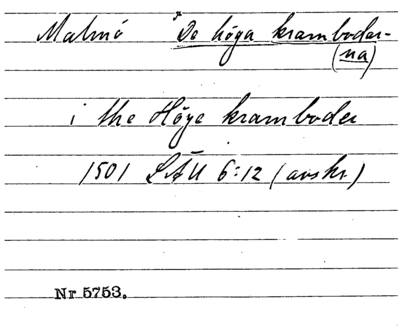 Malmö *De höga krambodar-
(na)
i the Höge kramboder
1501 LÄU 6:12 (avskr)
Nr 5753.